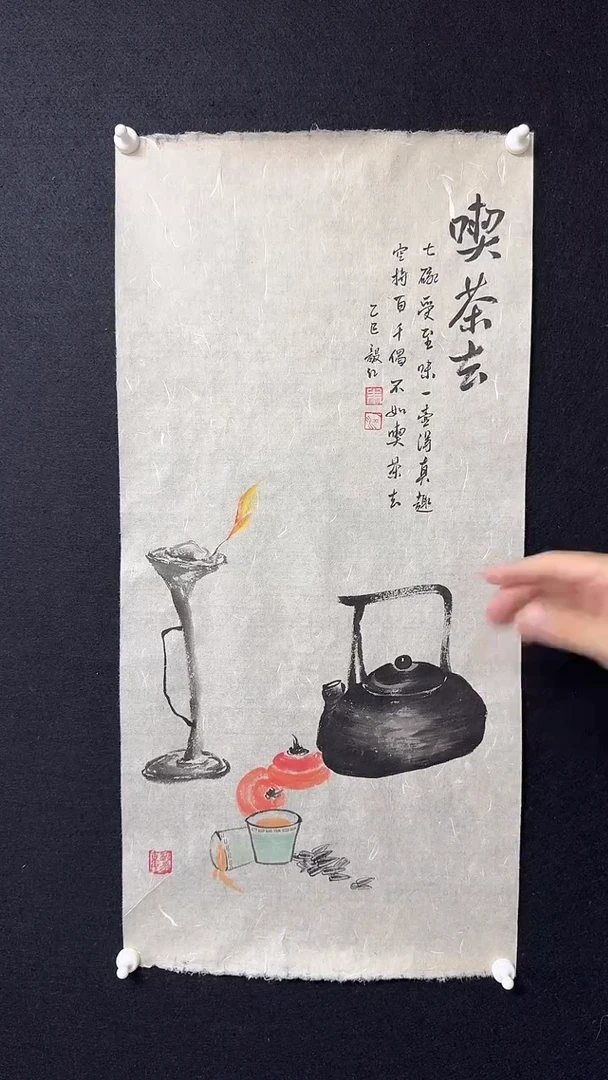 喫茶去
七碗受至味一壺得真趣
空持百千偈不如喫茶去
乙巳毅仁